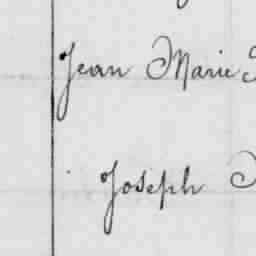 Jean Marie
Joseph